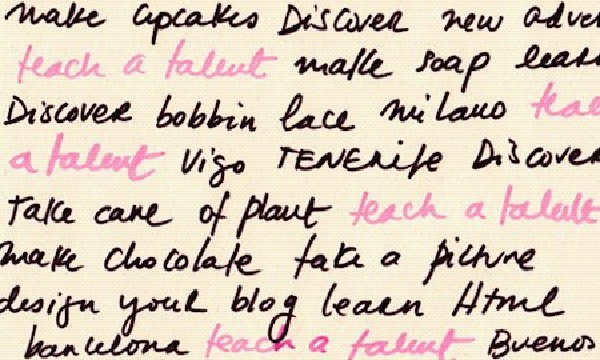 make cupcakes Discover new adve
teach a talent make soap learn
Discover bobbin lace milano teac
a talent Vigo TENERife Discover
Take care of plant teach a talent
make chocolate take a picture
design your blog learn Html
barcelona teach a talent Buenos